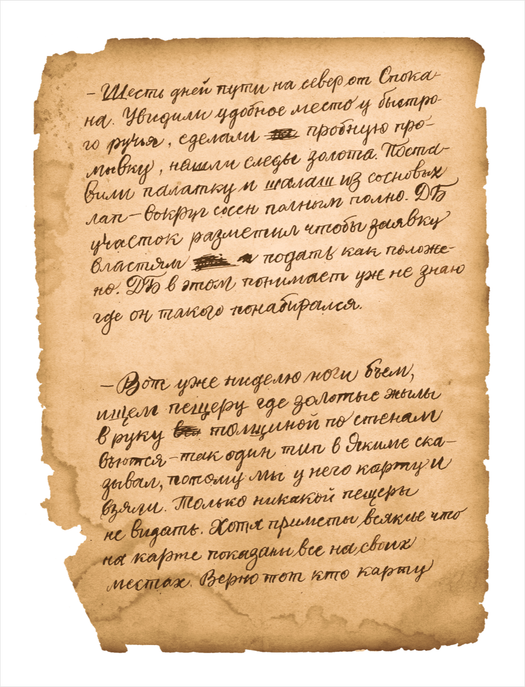 - Шесть дней пути на север от Спока-
на. Увидили удобное место у быстро-
го ручья, сделали пробную про-
мывку, нашли следы золота. Поста-
вили палатку и шалаш из сосновых
лап - вокруг сосен полным полно. ДБ
участок разметил чтобы заявку
властям подать как положе-
но. ДБ в этом понимает уже не знаю
где он такого понабирался.

- Вот уже ниделю ноги бьем,
ищем пещеру где золотые жилы
в руку толщиной по стенам
вьются - так один тип в Якиме ска-
зывал, потому мы у него карту и
взяли. Только никакой пещеры
не видать. Хотя приметы всякие что
на карте показаны все на своих
местах. Верно тот кто карту